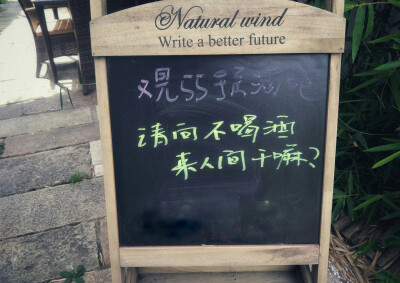 Natural wind
Write a better future
观55孤酒吧
请问不喝酒
来人间干嘛?